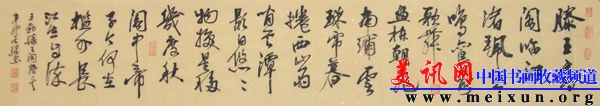 滕王高
阁临江
渚珮玉
鸣鸾罢
歌舞
画栋朝飞
南浦云
珠帘暮
捲西山雨
闲云潭
影日悠悠
物换星移
几度秋
阁中帝
子今何在
槛外长
江空自流
王勃滕王阁诗
美讯网
中国书画收藏频道
http://www.meixun.org